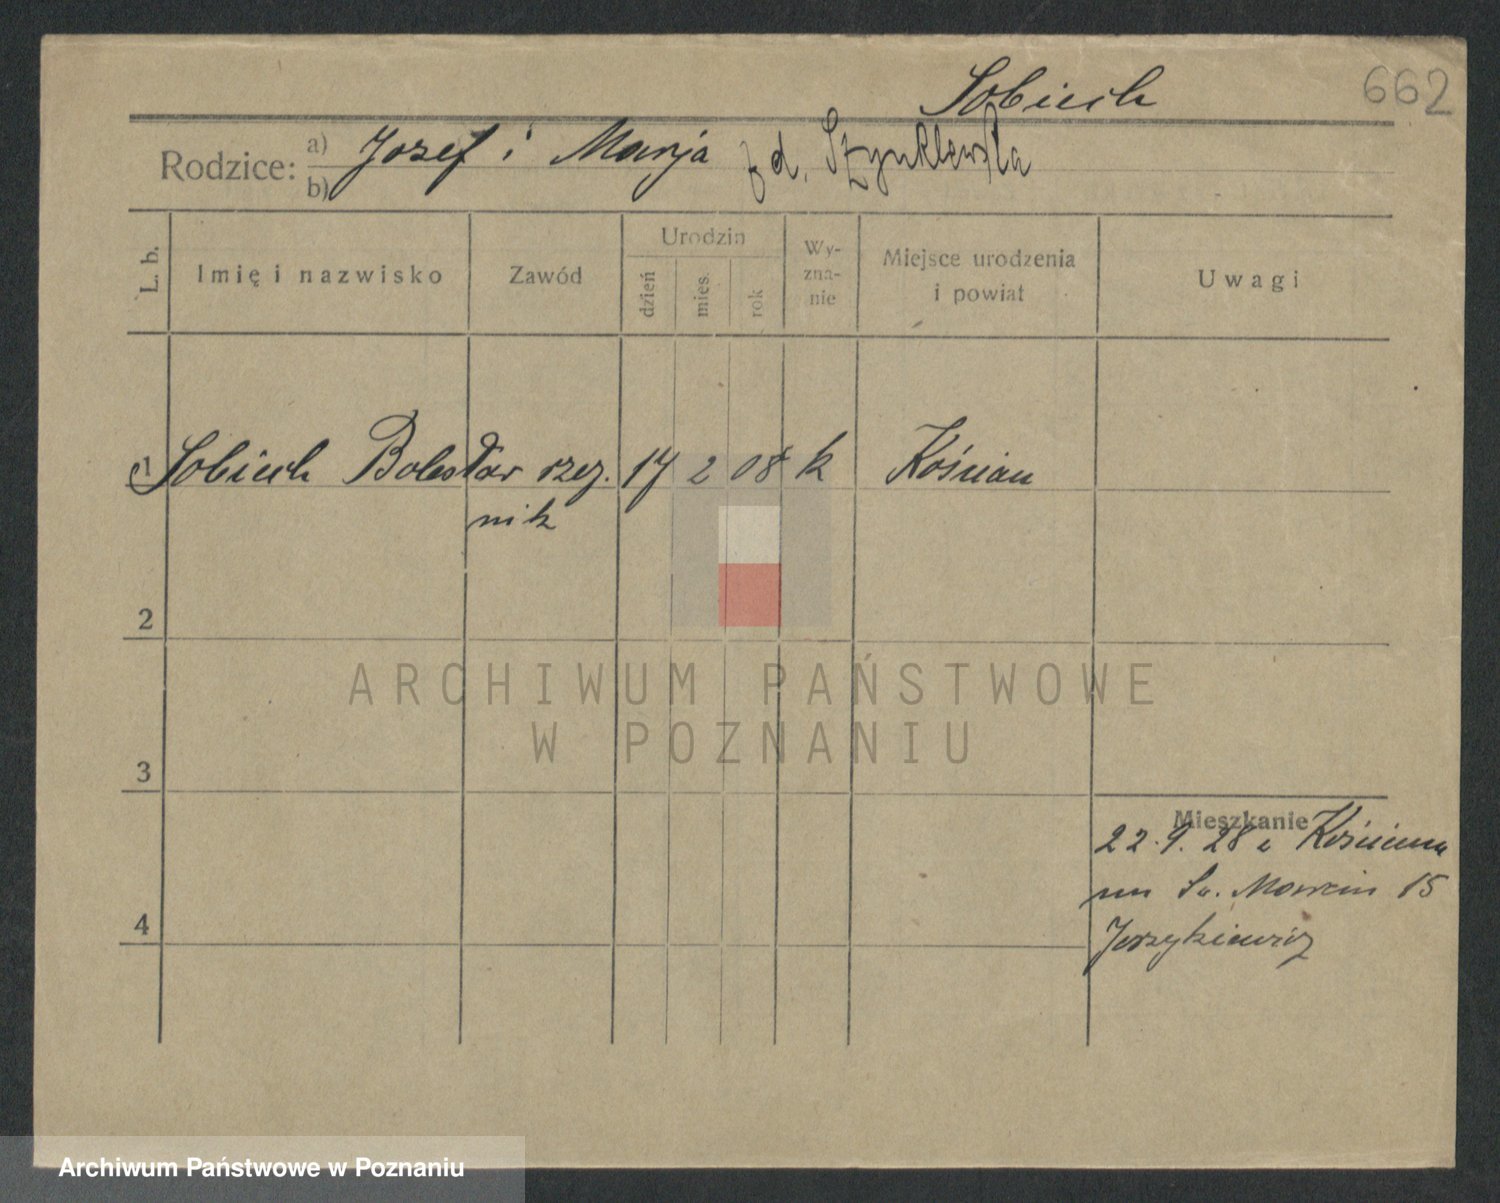 Sobiech
662
Rodzice: a) Józef i Marja z d. Szynklewska
b)
L. b.
Imię i nazwisko
Zawód
Urodzin
dzień
mies.
rok
Wy-
zna-
nie
Miejsce urodzenia
i powiat
Uwagi
1 Sobiech Bolesław rzeź. 17 2 08 k Kościan
nik
2
3
4
Mieszkanie
22.9.28 z Kościana
na Św. Marcin 15
Jerzykiewicz
ARCHIWUM PAŃSTWOWE
W POZNANIU
Archiwum Państwowe w Poznaniu